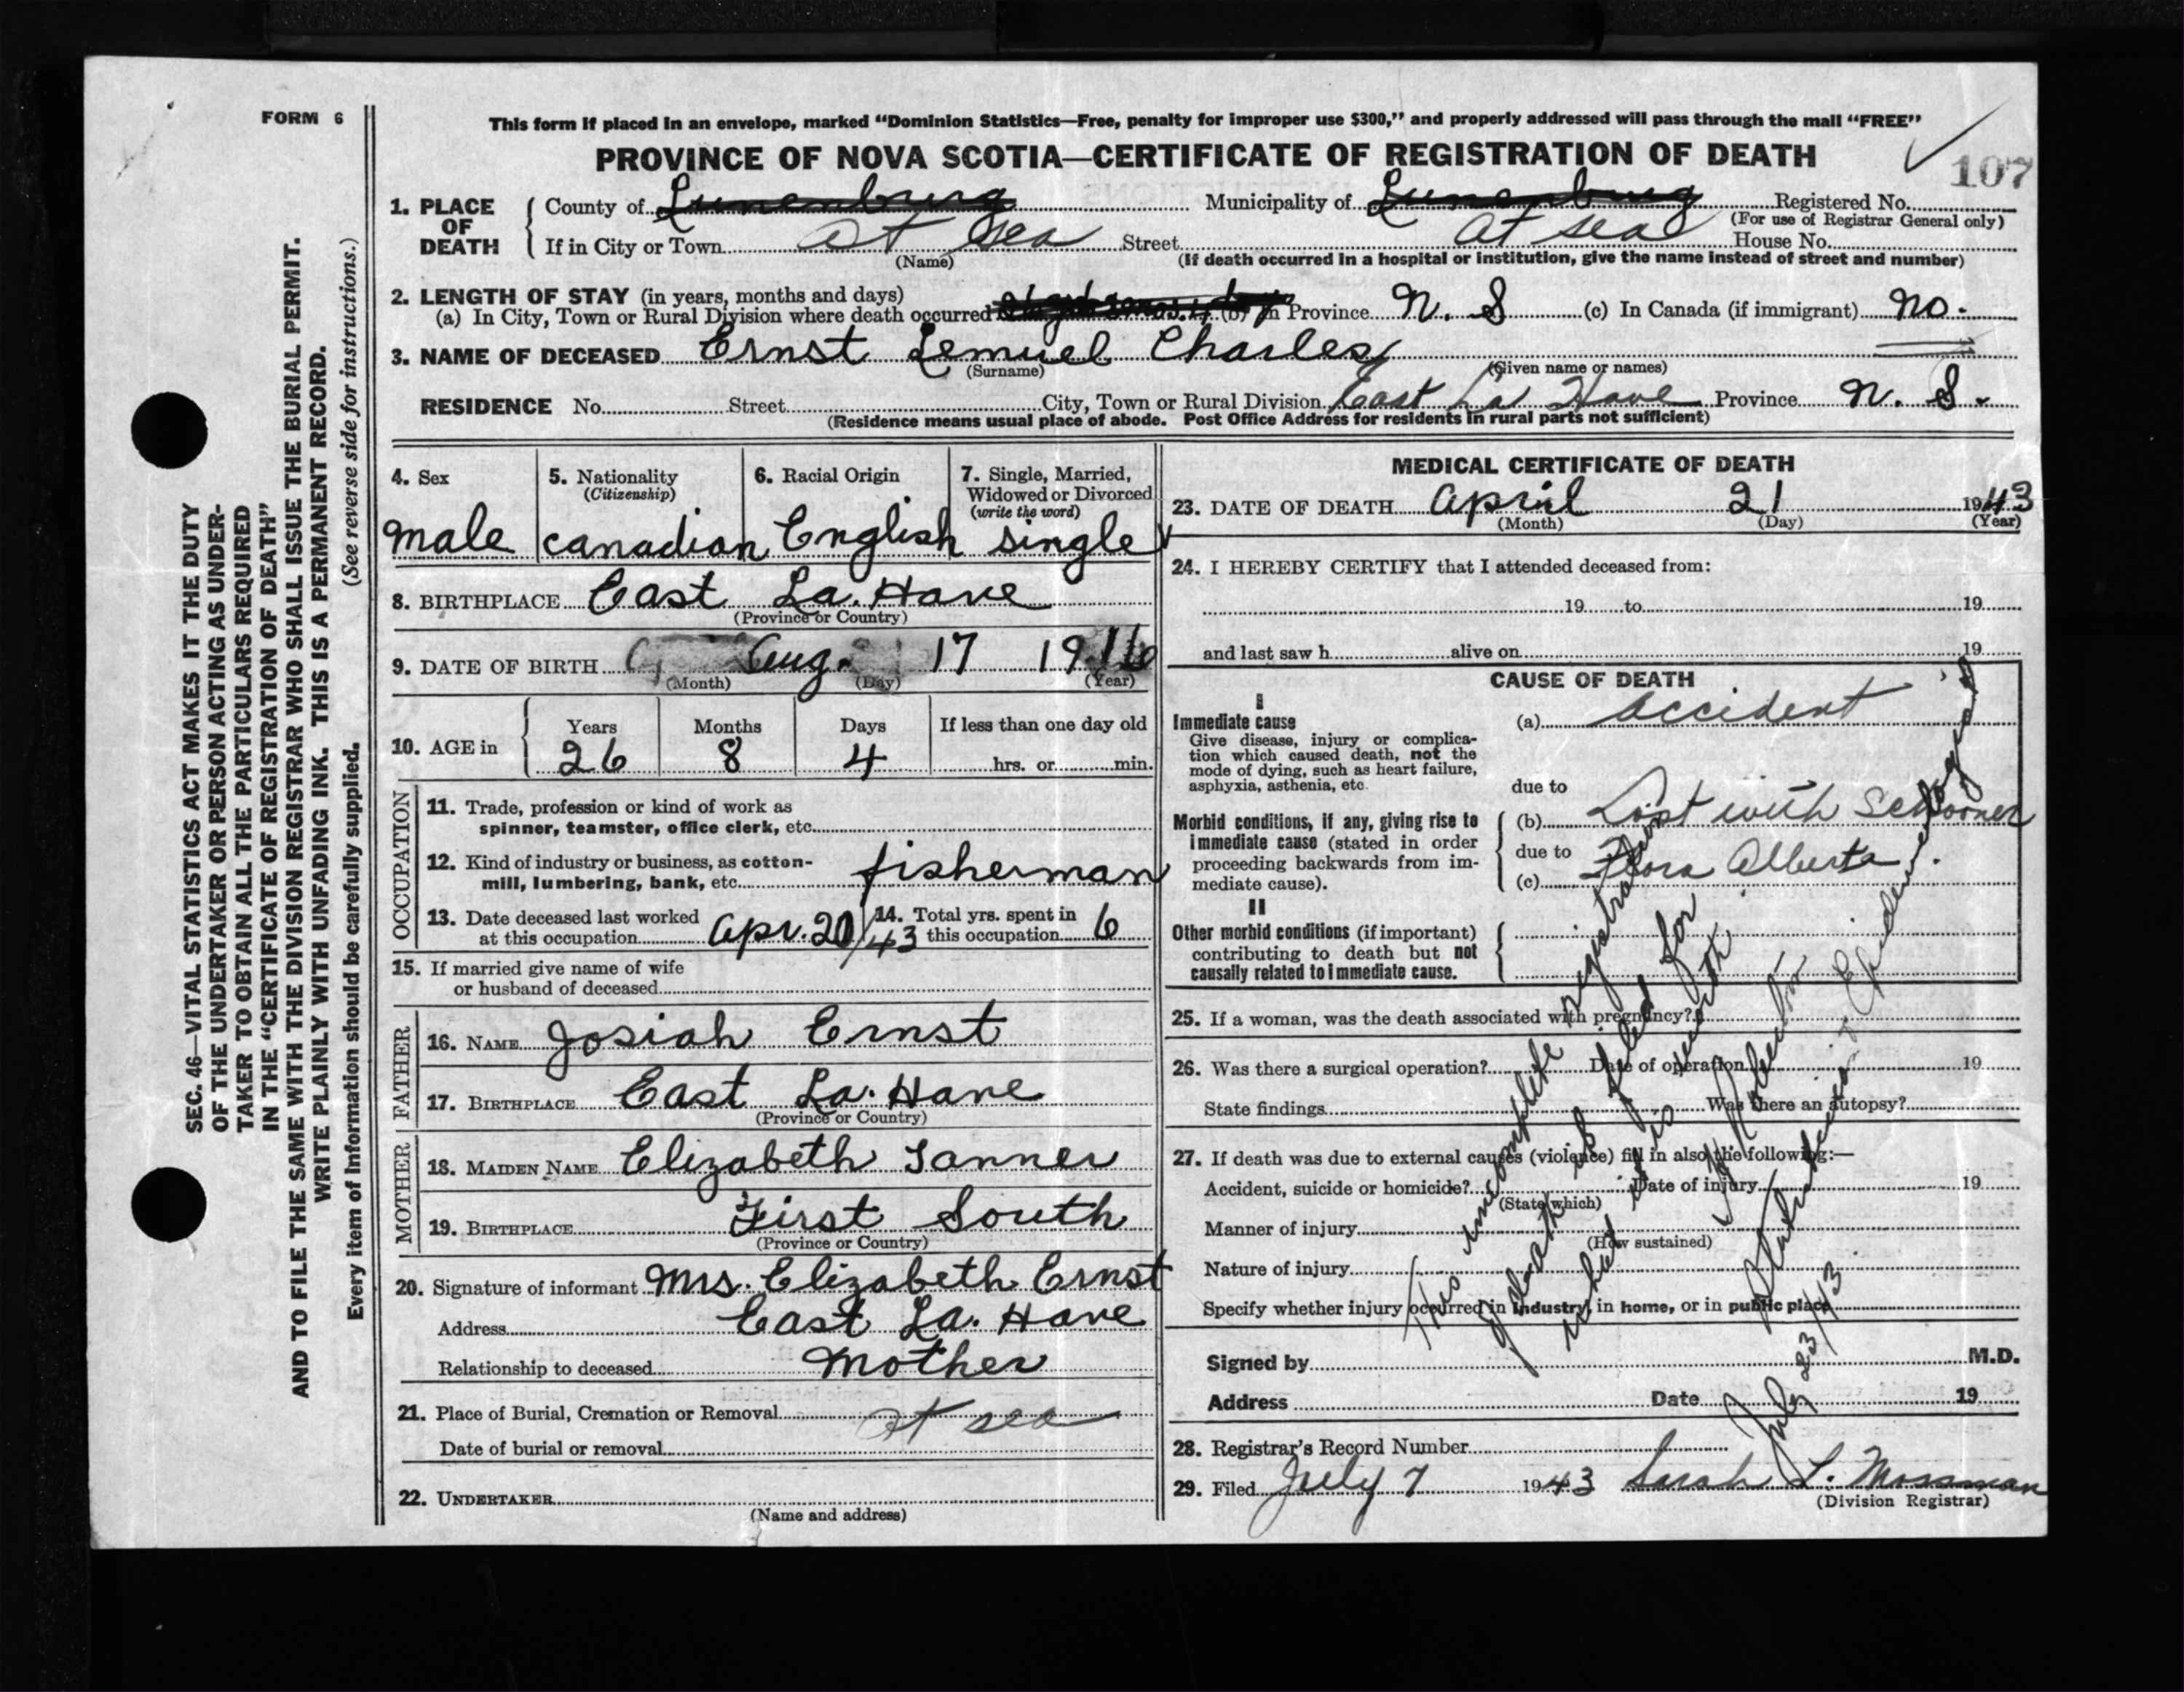 FORM 6
This form if placed in an envelope, marked “Dominion Statistics—Free, penalty for improper use $300,” and properly addressed will pass through the mail “FREE”
PROVINCE OF NOVA SCOTIA—CERTIFICATE OF REGISTRATION OF DEATH
107
1. PLACE OF DEATH
County of Lunenburg Municipality of Lunenburg Registered No.
(For use of Registrar General only)
If in City or Town at sea Street at sea House No.
(Name) (If death occurred in a hospital or institution, give the name instead of street and number)
2. LENGTH OF STAY (in years, months and days)
(a) In City, Town or Rural Division where death occurred (b) In Province N. S (c) In Canada (if immigrant) no.
3. NAME OF DECEASED Ernst Lemuel Charles
(Surname) (Given name or names)
RESIDENCE No. Street City, Town or Rural Division East La Have Province N. S.
(Residence means usual place of abode. Post Office Address for residents in rural parts not sufficient)
SEC. 46—VITAL STATISTICS ACT MAKES IT THE DUTY
OF THE UNDERTAKER OR PERSON ACTING AS UNDER-
TAKER TO OBTAIN ALL THE PARTICULARS REQUIRED
IN THE “CERTIFICATE OF REGISTRATION OF DEATH”
AND TO FILE THE SAME WITH THE DIVISION REGISTRAR WHO SHALL ISSUE THE BURIAL PERMIT.
WRITE PLAINLY WITH UNFADING INK. THIS IS A PERMANENT RECORD.
Every item of information should be carefully supplied. (See reverse side for instructions.)
4. Sex
male
5. Nationality
(Citizenship)
canadian
6. Racial Origin
English
7. Single, Married,
Widowed or Divorced
(write the word)
single
8. BIRTHPLACE East La. Have
(Province or Country)
9. DATE OF BIRTH Aug. 17 1916
(Month) (Day) (Year)
10. AGE in
Years Months Days If less than one day old
26 8 4 hrs. or min.
OCCUPATION
11. Trade, profession or kind of work as
spinner, teamster, office clerk, etc.
12. Kind of industry or business, as cotton-
mill, lumbering, bank, etc. fisherman
13. Date deceased last worked
at this occupation Apr. 20/43
14. Total yrs. spent in
this occupation 6
15. If married give name of wife
or husband of deceased
FATHER
16. NAME Josiah Ernst
17. BIRTHPLACE East La. Have
(Province or Country)
MOTHER
18. MAIDEN NAME Elizabeth Tanner
19. BIRTHPLACE First South
(Province or Country)
20. Signature of informant Mrs. Elizabeth Ernst
Address East La. Have
Relationship to deceased Mother
21. Place of Burial, Cremation or Removal at sea
Date of burial or removal
22. UNDERTAKER
(Name and address)
MEDICAL CERTIFICATE OF DEATH
23. DATE OF DEATH April 21 1943
(Month) (Day) (Year)
24. I HEREBY CERTIFY that I attended deceased from:
19 to 19
and last saw h alive on 19
CAUSE OF DEATH
I
Immediate cause
Give disease, injury or complica-
tion which caused death, not the
mode of dying, such as heart failure,
asphyxia, asthenia, etc.
(a) accident
due to
Morbid conditions, if any, giving rise to
immediate cause (stated in order
proceeding backwards from im-
mediate cause).
(b) Lost with schooner
due to
(c) Flora Alberta.
II
Other morbid conditions (if important)
contributing to death but not
causally related to immediate cause.
25. If a woman, was the death associated with pregnancy?
26. Was there a surgical operation? Date of operation 19
State findings Was there an autopsy?
27. If death was due to external causes (violence) fill in also the following:—
Accident, suicide or homicide? Date of injury 19
(State which)
Manner of injury
(How sustained)
Nature of injury
Specify whether injury occurred in industry, in home, or in public place
Signed by M.D.
Address Date 19
28. Registrar's Record Number
29. Filed July 7 1943 Sarah L. Mossman
(Division Registrar)
This incomplete registration
of death is filed for
what it is worth.
July 23/43